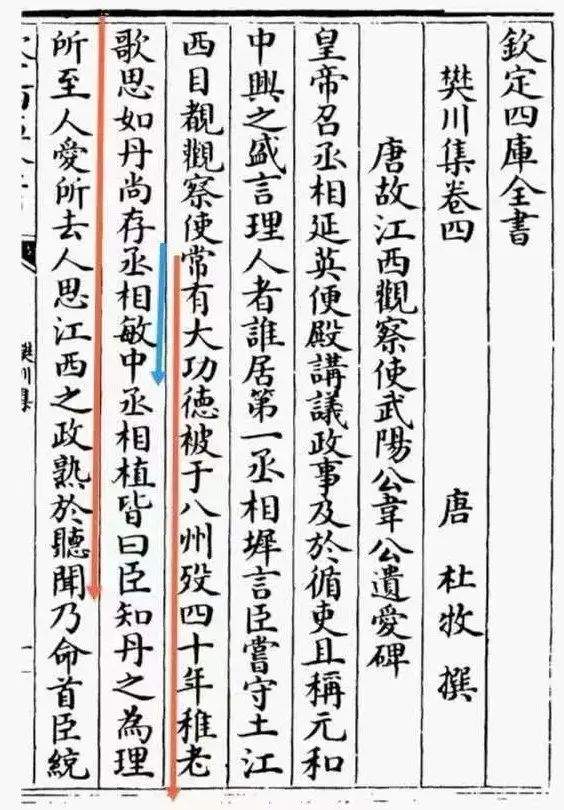 欽定四庫全書
樊川集卷四
唐 杜牧 撰
唐故江西觀察使武陽公韋公遺愛碑
皇帝召丞相延英便殿講議政事及於循吏且稱元和
中興之盛言理人者誰居第一丞相墀言臣嘗守土江
西目覩觀察使常有大功德被于八州歿四十年稚老
歌思如丹尚存丞相敏中丞相植皆曰臣知丹之為理
所至人愛所去人思江西之政熟於聽聞乃命首臣統
樊川集